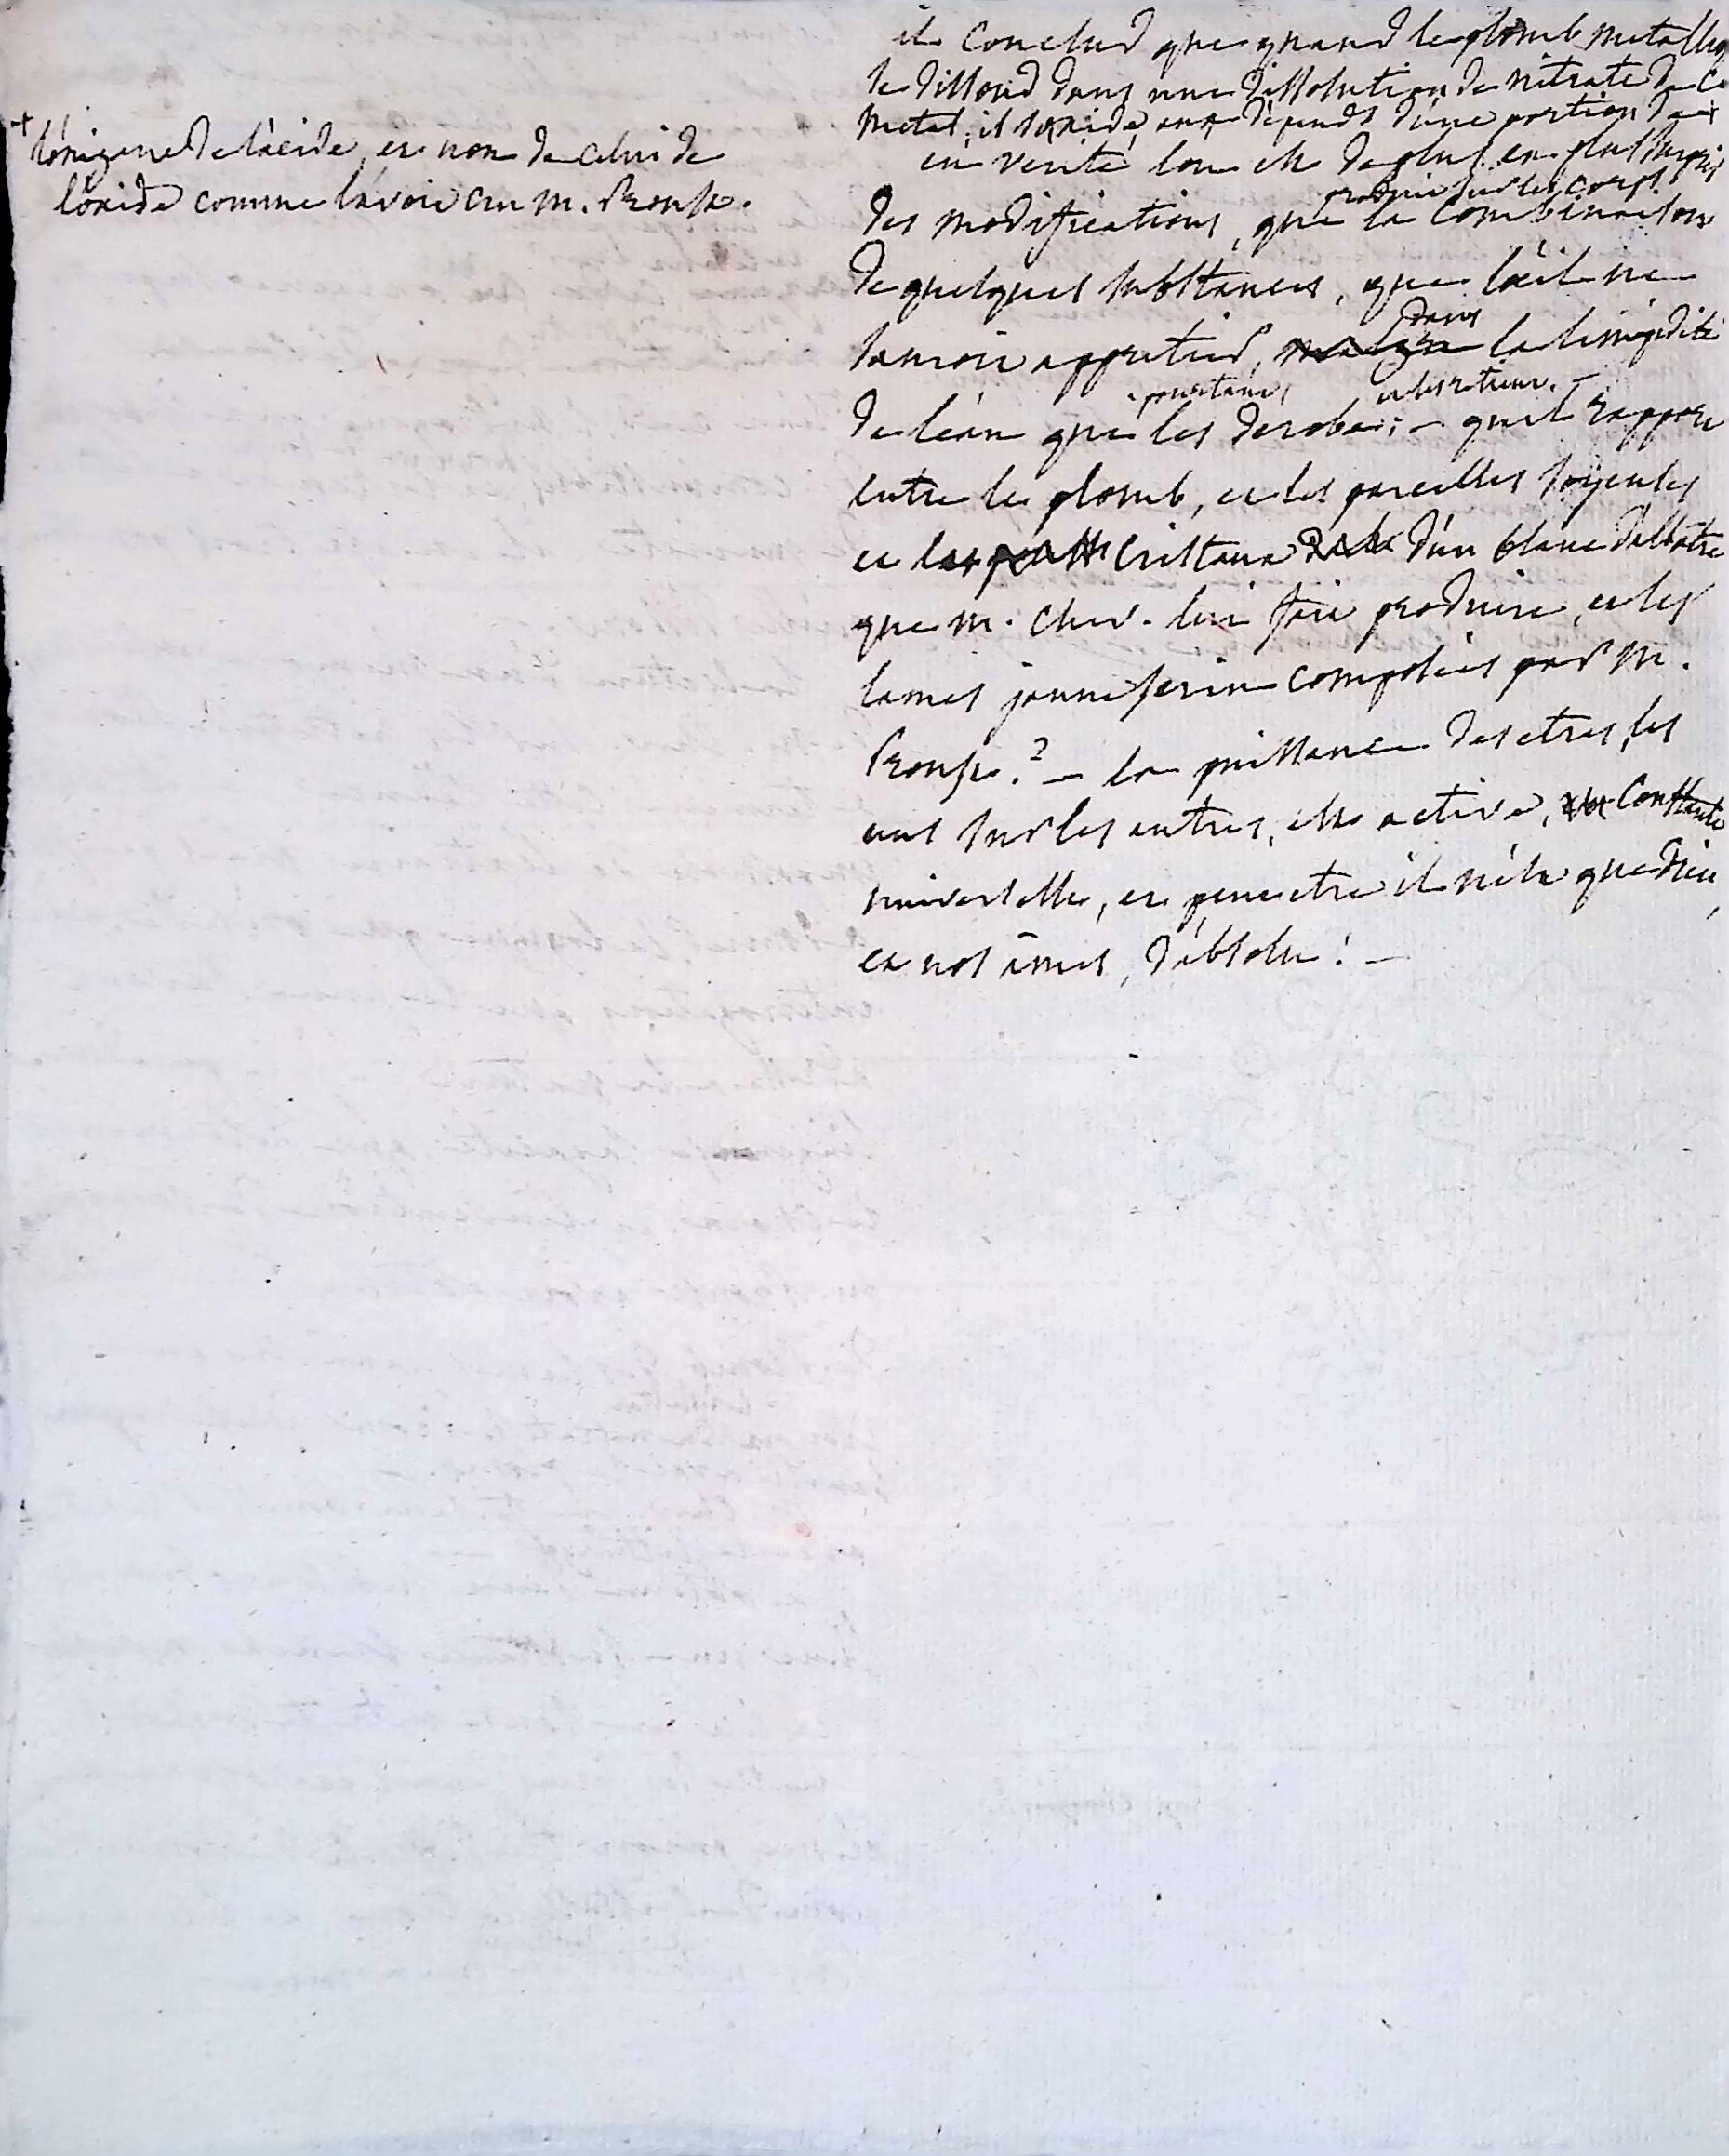 il conclud que quand le plomb metalliq
se dissoud dans une dissolution de nitrate de ce
metal, il s'oxide, aux dépends d'une portion de +
+ l'oxigene de l'acide, et non de celui de
l'oxide comme l'avoit cru M. Proust.
en verité l'on est de plus en plus surpris
produit sur les corps.
des modifications, que la combinaison
de quelques substances, que l'œil ne
dans
sauroit appretier, la limpidité
pourtant et les retient. -
de l'eau qui les derobe ; - quel rapport
entre le plomb, et les parcelles soyeuses
et les cristaux d'un blanc d'albatre
que M. Chev. lui fait produire, et les
lames jaune serin composées par M.
Proust ? - la puissance des etres, les
uns sur les autres, est active, constante
universelle, et peut etre il n'est que Dieu,
et nos âmes, d'absolu ! -